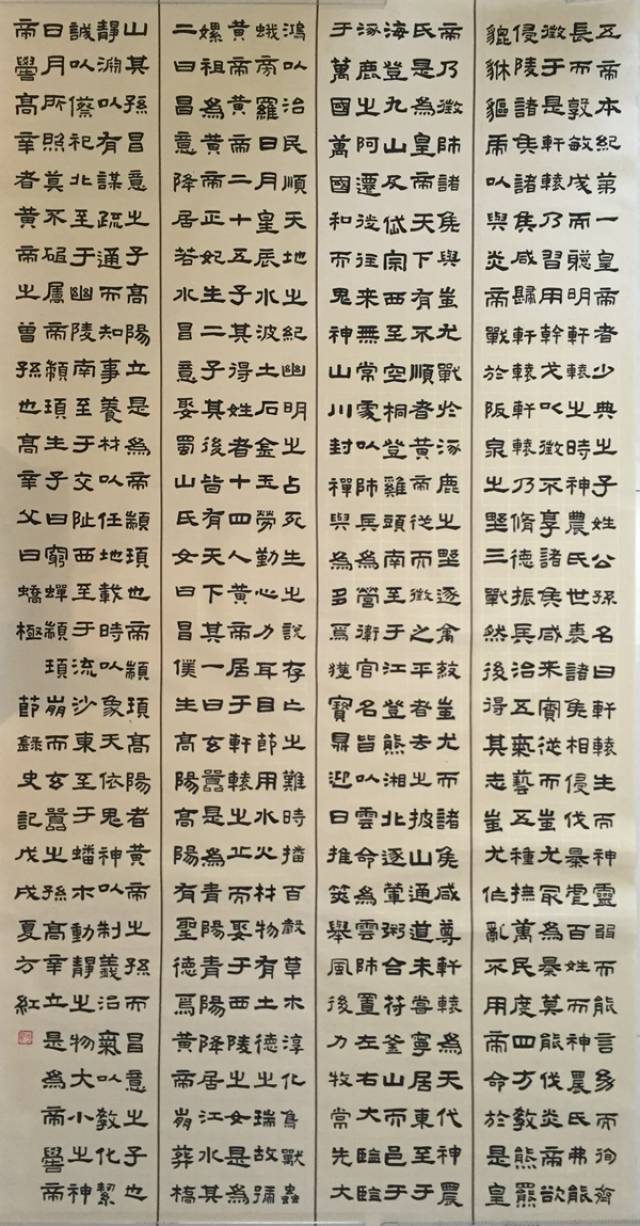 五帝本紀第一皇帝者少典之子姓公孫名曰軒轅生而神靈弱而能言而徇齊
長而敦敏成而聰明軒轅之時神農氏世衰諸侯相侵伐暴虐百姓而神農氏弗能
徵于是軒轅乃習用幹戈以徵不享諸侯咸來賓從而蚩尤最為暴莫能伐炎帝欲
侵陵諸侯諸侯咸歸軒轅軒轅乃脩德振兵治五氣藝五種撫萬民度四方教熊羆
貔貅貙虎以與炎帝戰於阪泉之野三戰然後得其志蚩尤作亂不用帝命於是皇
帝乃徵師諸侯與蚩尤戰於涿鹿之野逐禽紋蚩尤而諸侯咸尊軒轅為天代神農
氏是為皇帝天下有不順者黃帝從而徵之平者去之披山通道未嘗寧居東至于
海登九山及岱宗西至空桐登雞頭南至于江登熊湘北逐葷粥合符釜山而邑于
涿鹿之阿遷徙往來無常處以師兵為營衛官名皆以雲命為雲師置左右大臨臨
于萬國萬國和而鬼神山川封禪與為多焉獲寶鼎迎日推筴舉風後力牧常先大
鴻以治民順天地之紀幽明之占死生之說存亡之難時播百穀草木淳化鳥獸蟲
蛾旁羅日月皇辰水波土石金玉勞勤心力耳目節用水火材物有土德之瑞故彌
黃帝黃帝二十五子其得姓者十四人黃帝居于軒轅之丘而娶于西陵之女是為
嫘祖為黃帝正妃生二子其後皆有天下其一曰玄囂是為青陽青陽降居江水其
二曰昌意降居若水昌意娶蜀山氏女曰昌僕生高陽高陽有聖德焉黃帝崩葬橋
山其孫昌意之子高陽立是為帝顓頊也帝顓頊高陽者黃帝之孫而昌意之子也
靜淵以有謀疏通而知事養材以任地載時以象天依鬼神以制義治氣以教化絜
誠以祭祀北至于幽陵南至于交阯西至于流沙東至于蟠木動靜之物大小之神
日月所照莫不砥屬帝顓頊生子曰窮蟬顓頊崩而玄囂之孫高辛立是為帝嚳帝
帝嚳高辛者黃帝之曾孫也高辛父曰蟜極 節錄史記戊戌夏方紅